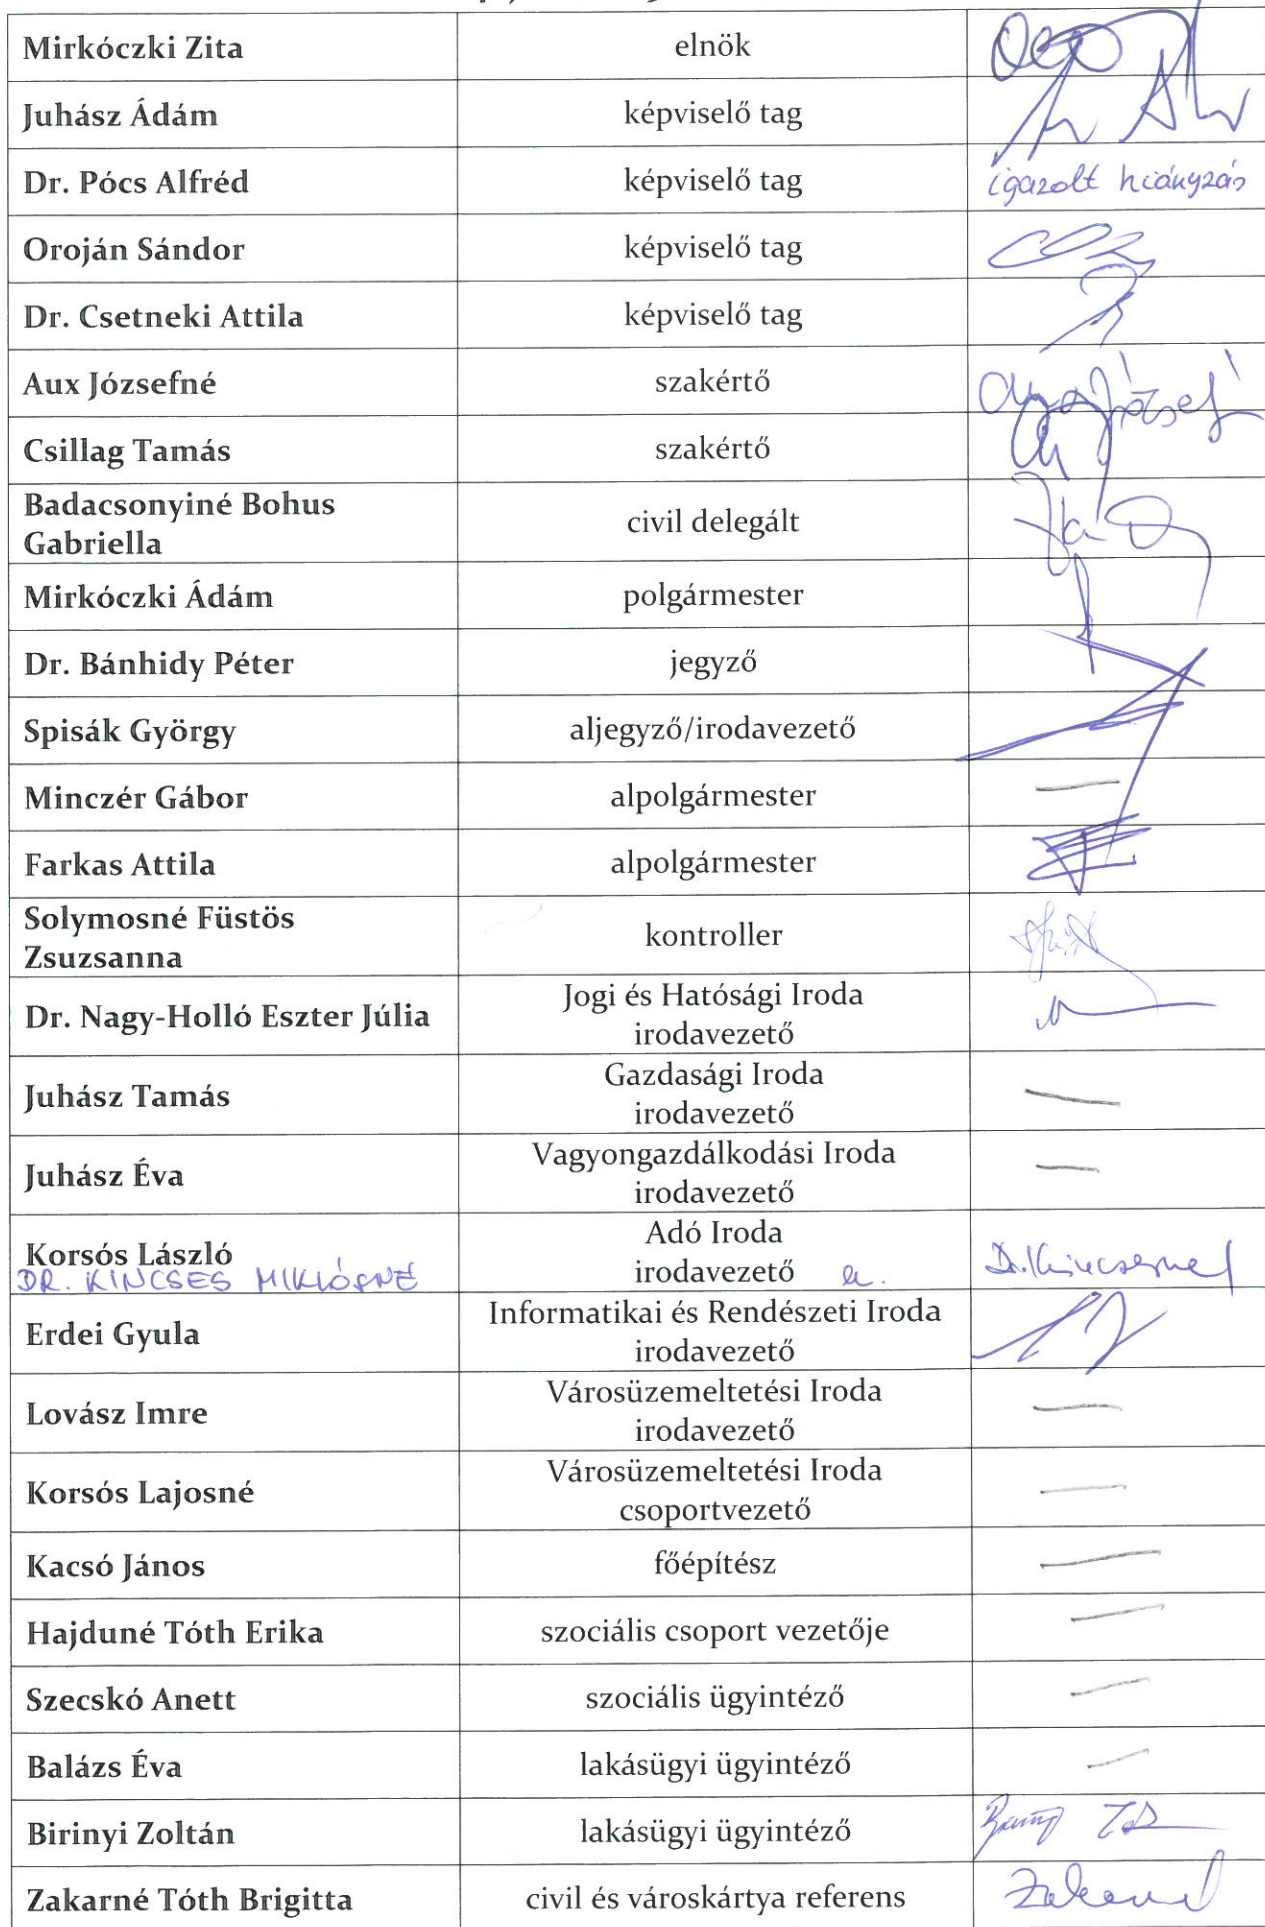 Mirkóczki Zita elnök
Juhász Ádám képviselő tag
Dr. Pócs Alfréd képviselő tag igazolt hiányzás
Oroján Sándor képviselő tag
Dr. Csetneki Attila képviselő tag
Aux Józsefné szakértő
Csillag Tamás szakértő
Badacsonyiné Bohus
Gabriella
civil delegált
Mirkóczki Ádám polgármester
Dr. Bánhidy Péter jegyző
Spisák György aljegyző/irodavezető
Minczér Gábor alpolgármester
Farkas Attila alpolgármester
Solymosné Füstös
Zsuzsanna
kontroller
Dr. Nagy-Holló Eszter Júlia
Jogi és Hatósági Iroda
irodavezető
Juhász Tamás
Gazdasági Iroda
irodavezető
Juhász Éva
Vagyongazdálkodási Iroda
irodavezető
Korsós László
DR. KINCSES MIKLÓSNÉ
Adó Iroda
irodavezető
Dr. Kincsesné
Erdei Gyula
Informatikai és Rendészeti Iroda
irodavezető
Lovász Imre
Városüzemeltetési Iroda
irodavezető
Korsós Lajosné
Városüzemeltetési Iroda
csoportvezető
Kacsó János főépítész
Hajduné Tóth Erika szociális csoport vezetője
Szecskó Anett szociális ügyintéző
Balázs Éva lakásügyi ügyintéző
Birinyi Zoltán lakásügyi ügyintéző
Zakarné Tóth Brigitta civil és városkártya referens